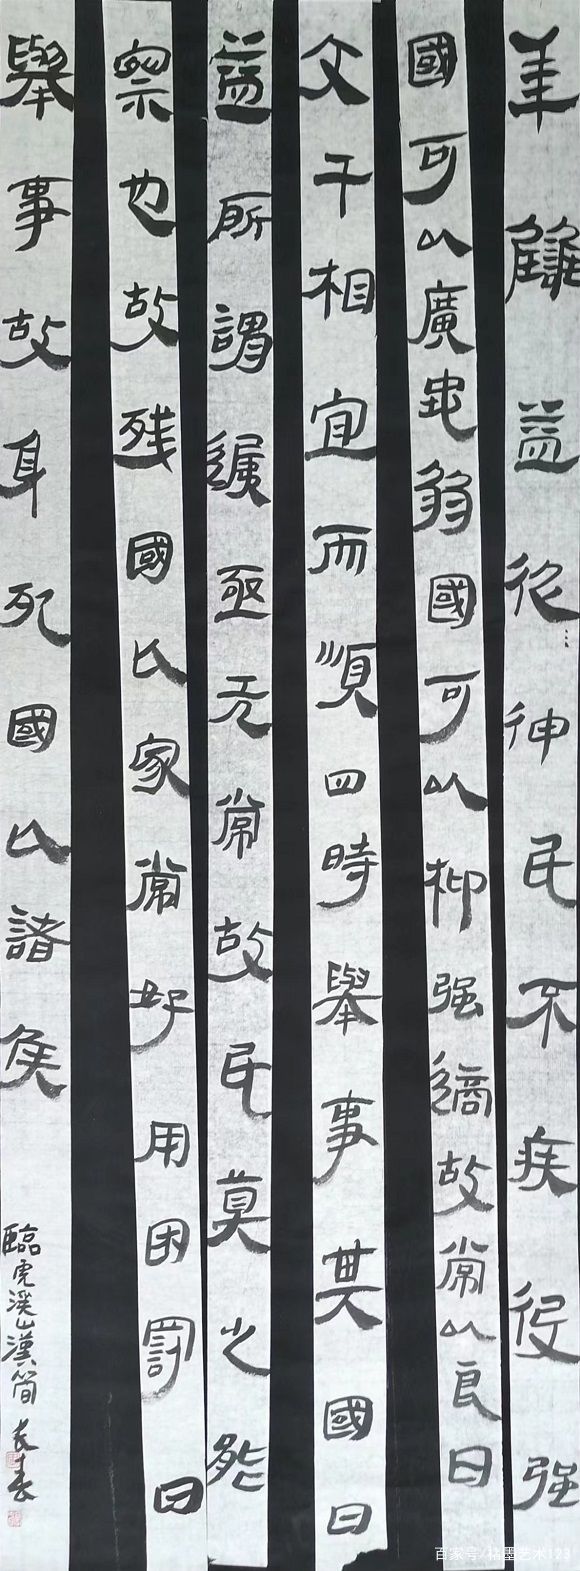 年雖益民不疾役强
國可以廣地弱國可以抑强適故常以良日
支干相宜而順四時舉事其國日
益所謂亟无常故民莫之能
察也故残國亡家常好用困罰日
舉事故身死國亡諸侯
臨虎溪山漢簡
百家号/格墨艺术123